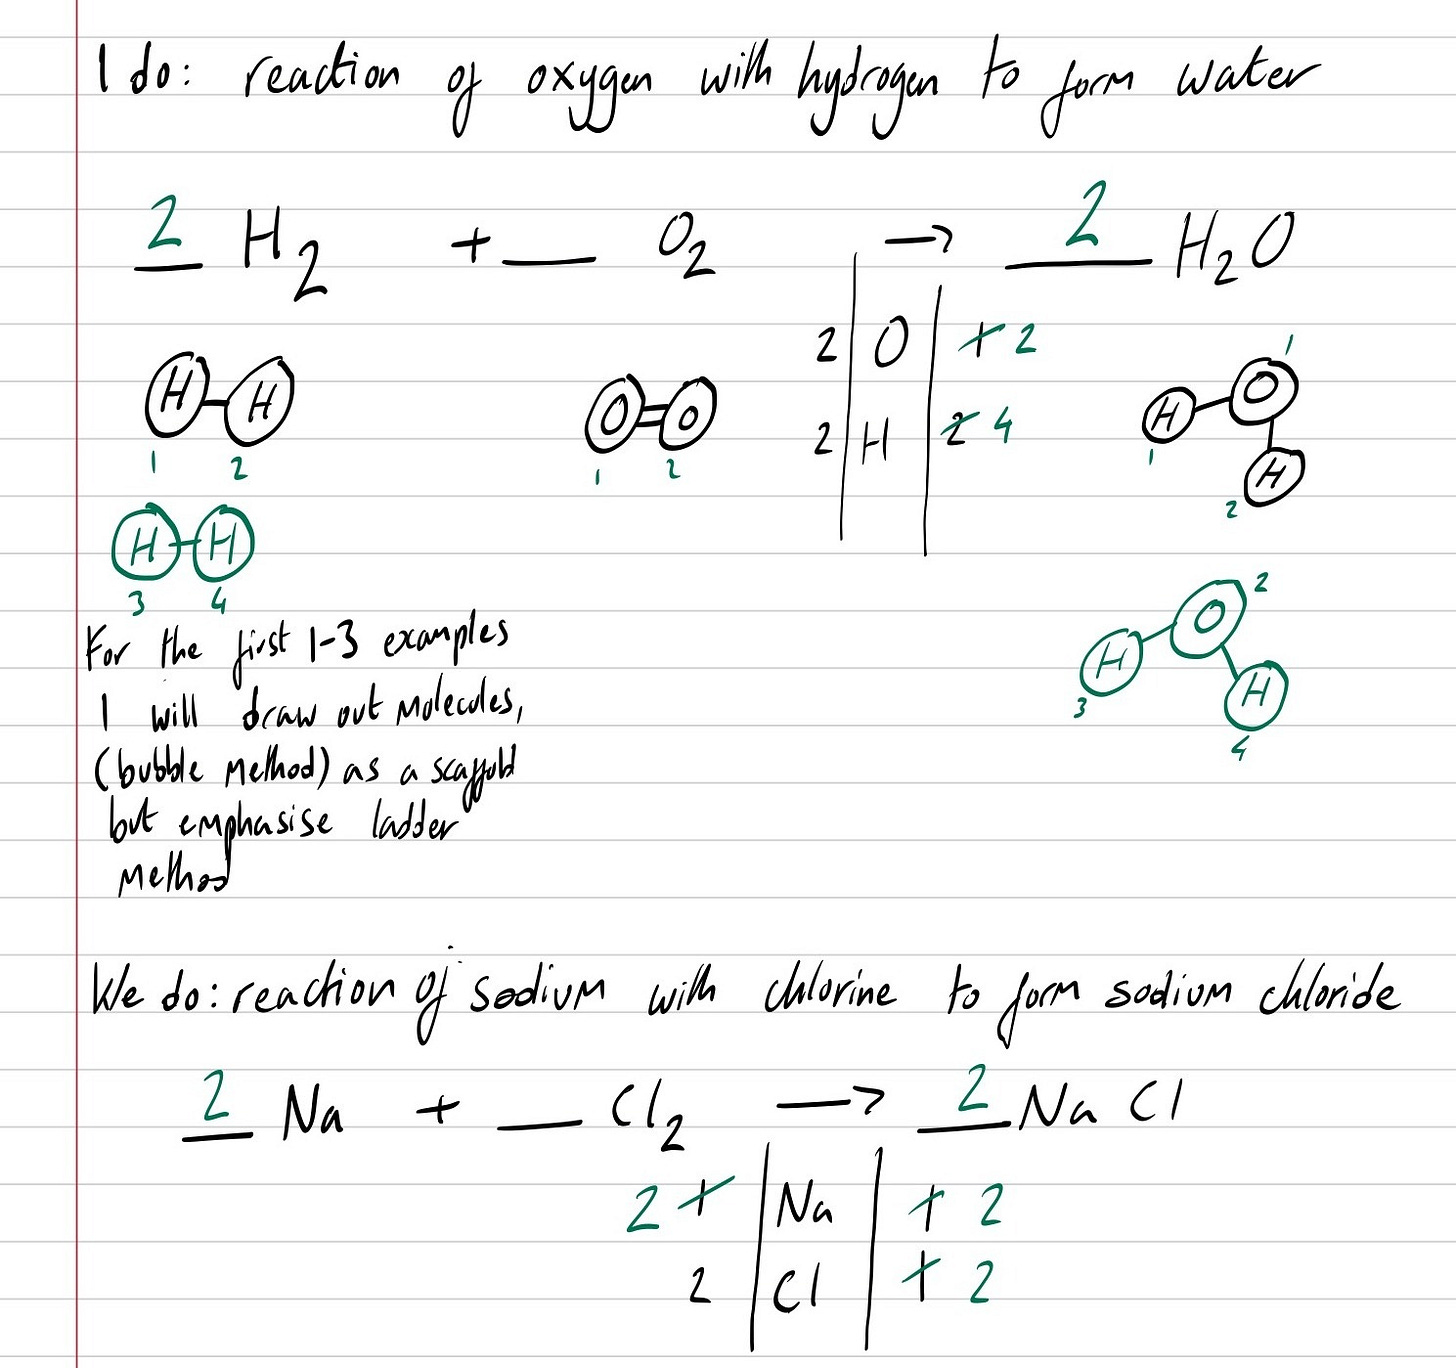 I do: reaction of oxygen with hydrogen to form water
2 H2 + __ O2 → 2 H2O
2 | O | 1 2
2 | H | 2 4
H H
1 2
O O
1 2
H O H
1 1 2
H H
3 4
H O H
3 2 4
For the first 1-3 examples
I will draw out molecules,
(bubble method) as a scaffold
but emphasise ladder
method
We do: reaction of sodium with chlorine to form sodium chloride
2 Na + __ Cl2 → 2 NaCl
2 1 | Na | 1 2
2 | Cl | 1 2